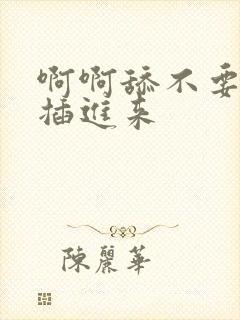 啊啊舔不要
插進来
陳麗華